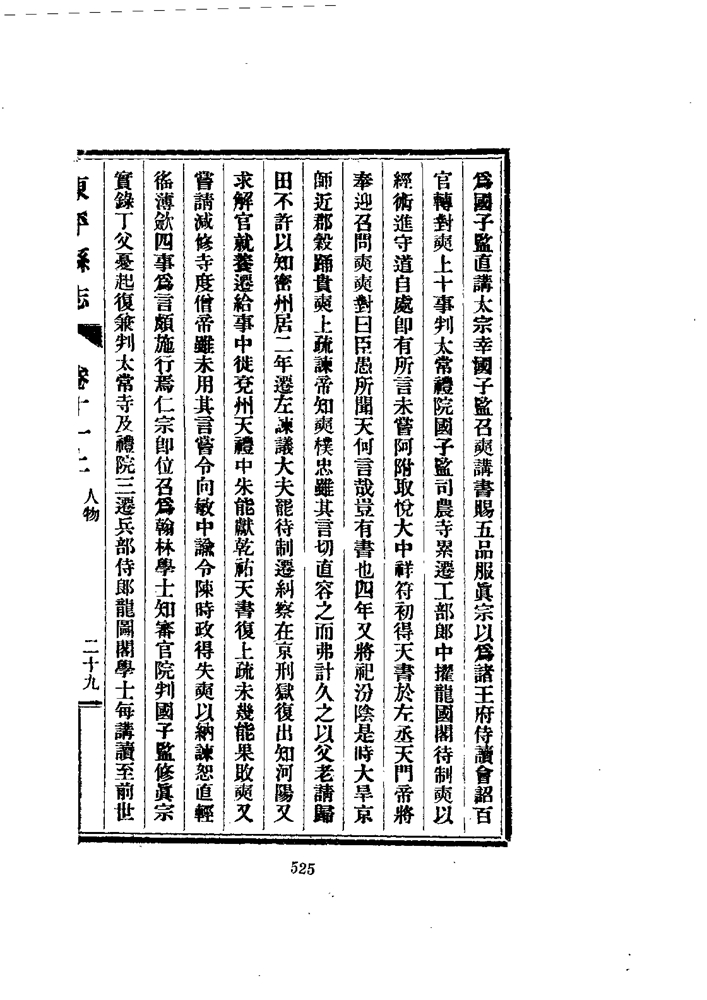 爲國子監直講太宗幸國子監召奭講書賜五品服眞宗以爲諸王府侍讀會詔百
官轉對奭上十事判太常禮院國子監司農寺累遷工部郎中擢龍圖閣待制奭以
經術進守道自處卽有所言未嘗阿附取悅大中祥符初得天書於左丞天門帝將
奉迎召問奭奭對曰臣愚所聞天何言哉豈有書也四年又將祀汾陰是時大旱京
師近郡穀踊貴奭上疏諫帝知奭樸忠雖其言切直容之而弗計久之以父老請歸
田不許以知密州居二年遷左諫議大夫罷待制遷糾察在京刑獄復出知河陽又
求解官就養遷給事中徙兗州天禮中朱能獻乾祐天書復上疏未幾能果敗奭又
嘗請減修寺度僧帝雖未用其言嘗令向敏中諭令陳時政得失奭以納諫恕直輕
徭薄斂四事爲言頗施行焉仁宗卽位召爲翰林學士知審官院判國子監修眞宗
實錄丁父憂起復兼判太常寺及禮院三遷兵部侍郎龍圖閣學士每講讀至前世
東平縣志 卷十一上 人物 二十九
525